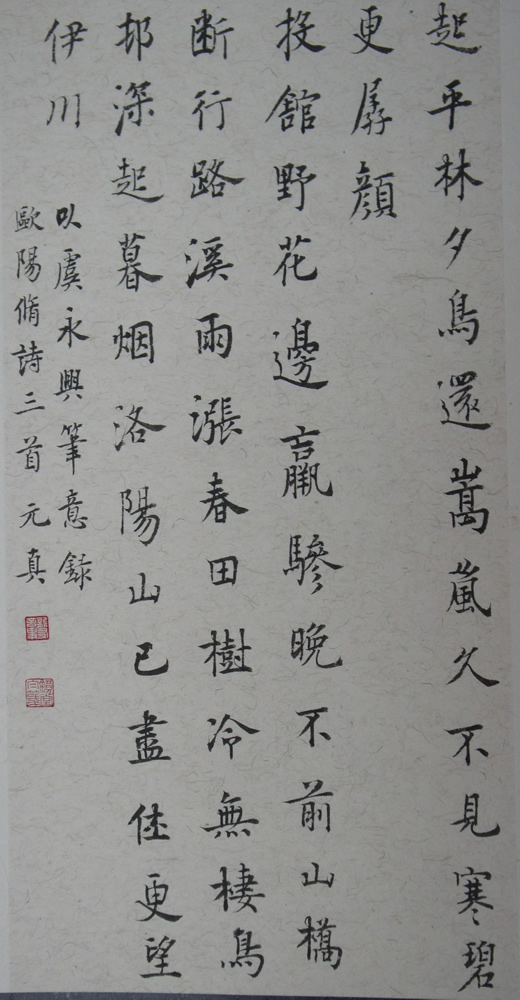 起平林夕鳥還嵩嵐久不見寒碧
更孱顔
投館野花邊羸驂晚不前山橋
断行路溪雨漲春田樹冷無棲鳥
邨深起暮烟洛陽山已盡休更望
伊川
以虞永興筆意録
歐陽脩詩三首元真